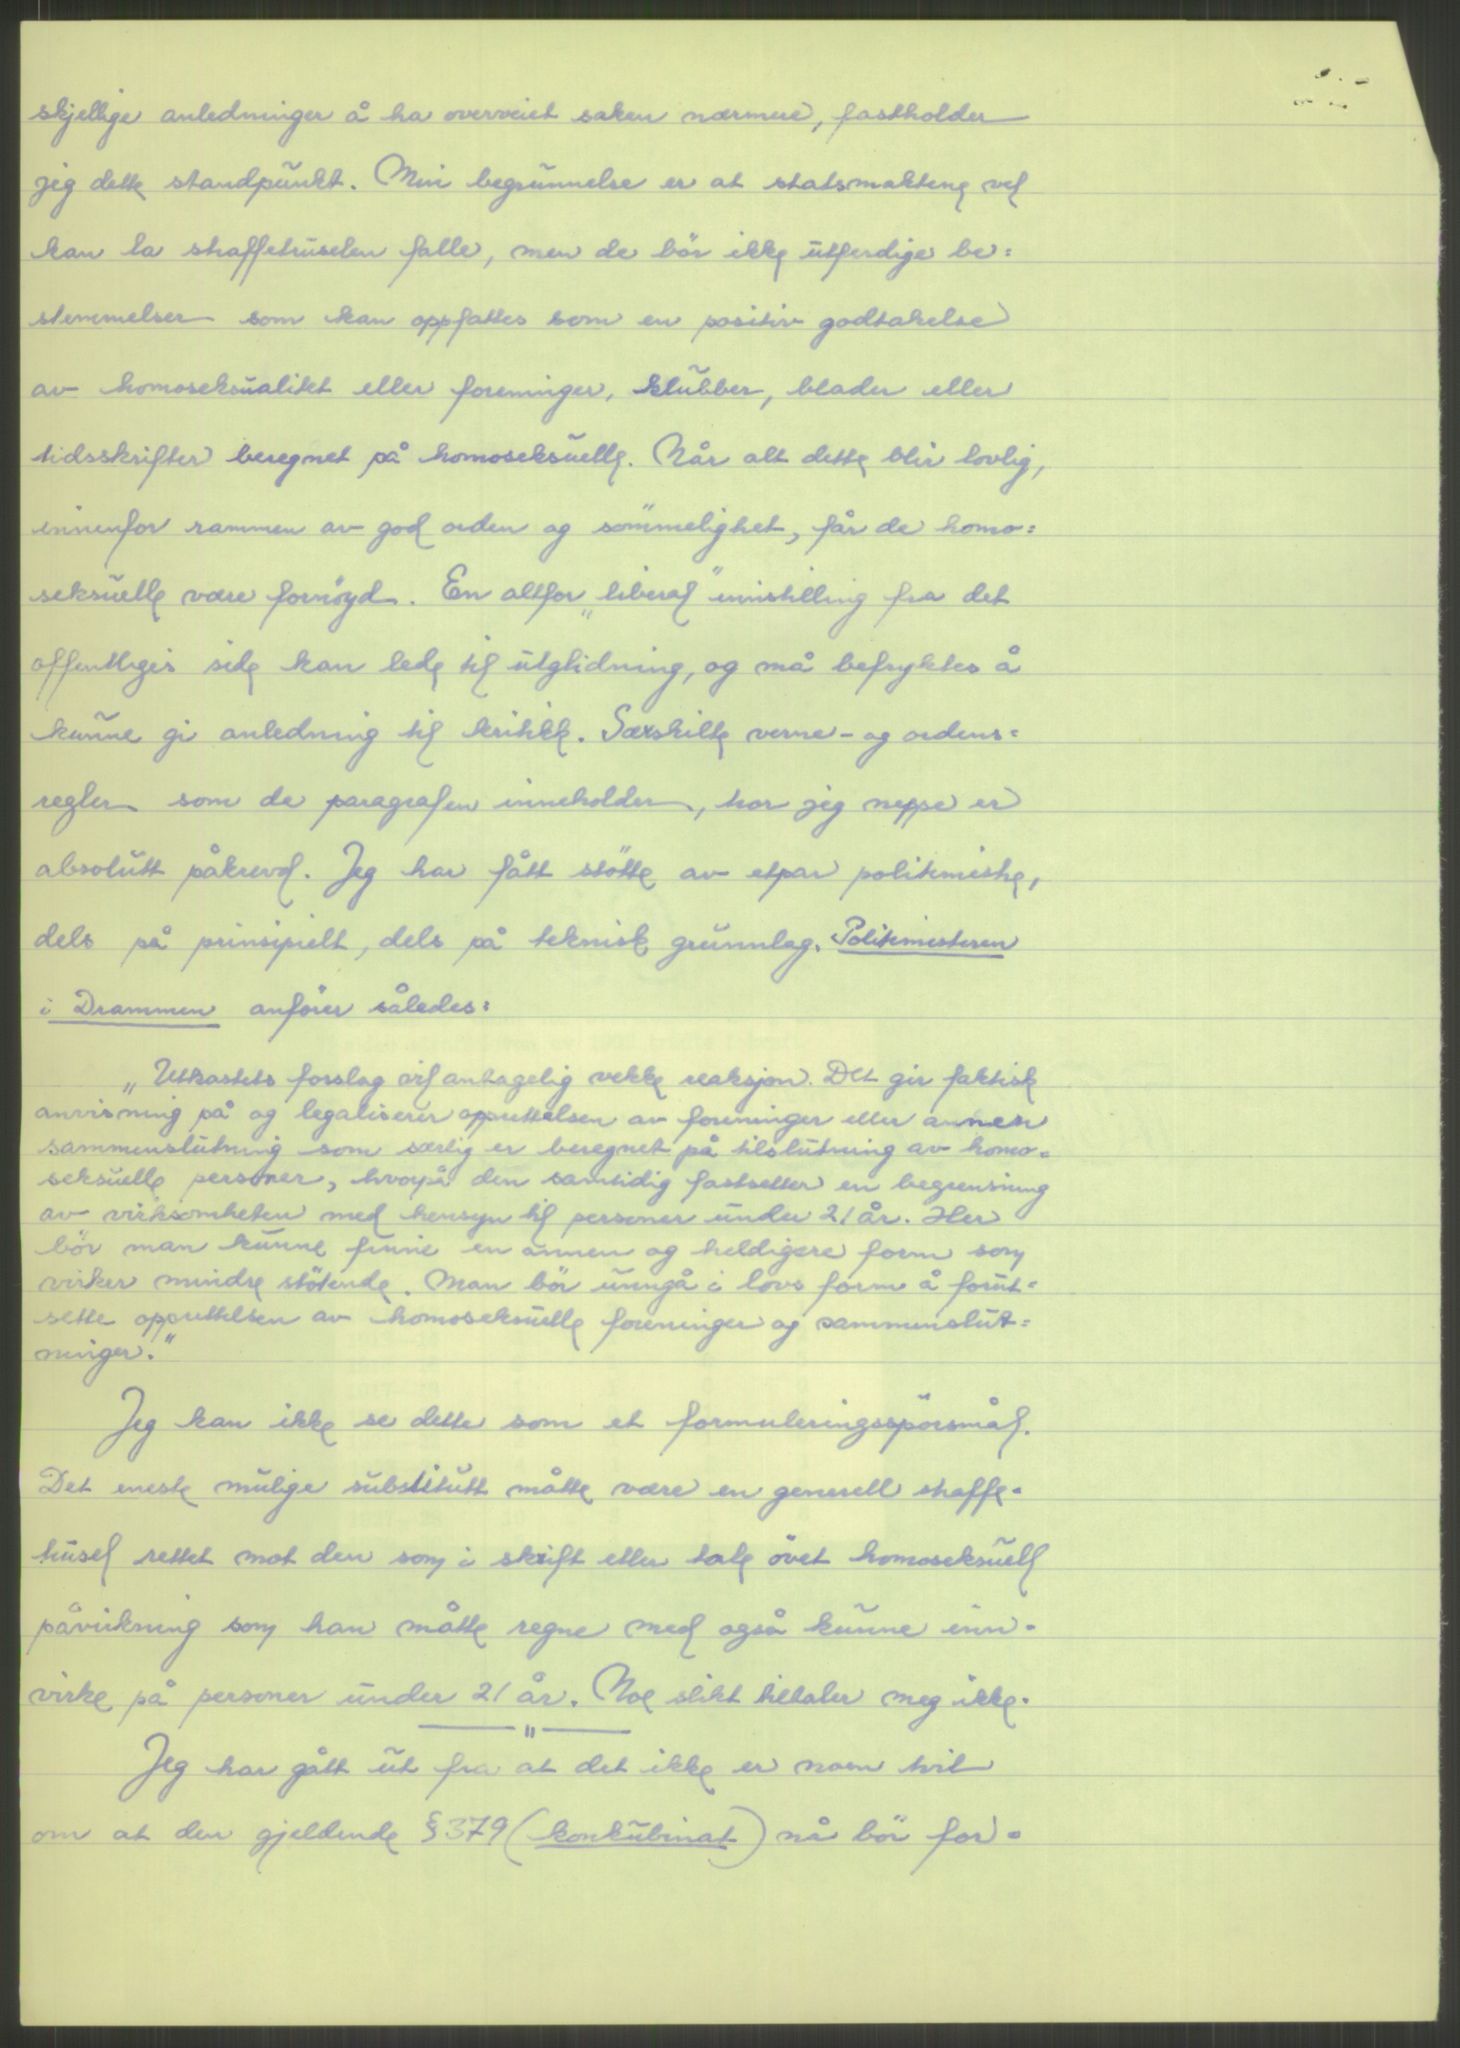 skjellige anledninger å ha overveiet saken nærmere, fastholder
jeg dette standpunkt. Min begrunnelse er at statsmaktene vel
kan la straffetruselen falle, men de bör ikke utferdige be=
stemmelser som kan oppfattes som en positiv godtakelse
av homoseksualitet eller foreninger, klubber, blader eller
tidsskrifter beregnet på homoseksuelle. Når alt dette blir lovlig,
innenfor rammen av god orden og sömmelighet, får de homo=
seksuelle være fornöyd. En altfor „liberal" innstilling fra det
offentliges side kan lede til utglidning, og må befryktes å
kunne gi anledning til kritikk. Særskilte verne- og ordens=
regler som de paragrafen inneholder, tror jeg neppe er
absolutt påkrevd. Jeg har fått stötte av etpar politimestre,
dels på prinsipielt, dels på teknisk grunnlag. Politimesteren
i Drammen anförer således:
„Utkastets forslag vil antagelig vekke reaksjon. Det gir faktisk
anvisning på og legaliserer opprettelsen av foreninger eller annen
sammenslutning som særlig er beregnet på tilslutning av homo=
seksuelle personer, hvorpå den samtidig fastsetter en begrensning
av virksomheten med hensyn til personer under 21 år. Her
bör man kunne finne en annen og heldigere form som
virker mindre stötende. Man bör unngå i lovs form å forut=
sette opprettelsen av homoseksuelle foreninger og sammenslut=
ninger."
Jeg kan ikke se dette som et formuleringsspörsmål.
Det eneste mulige substitutt måtte være en generell straffe=
trusel rettet mot den som i skrift eller tale övet homoseksuell
påvirkning som han måtte regne med også kunne inn=
virke på personer under 21 år. Noe slikt tiltaler meg ikke.
"
Jeg har gått ut fra at det ikke er noen tvil
om at den gjeldende § 379 (konkubinat) nå bör for=